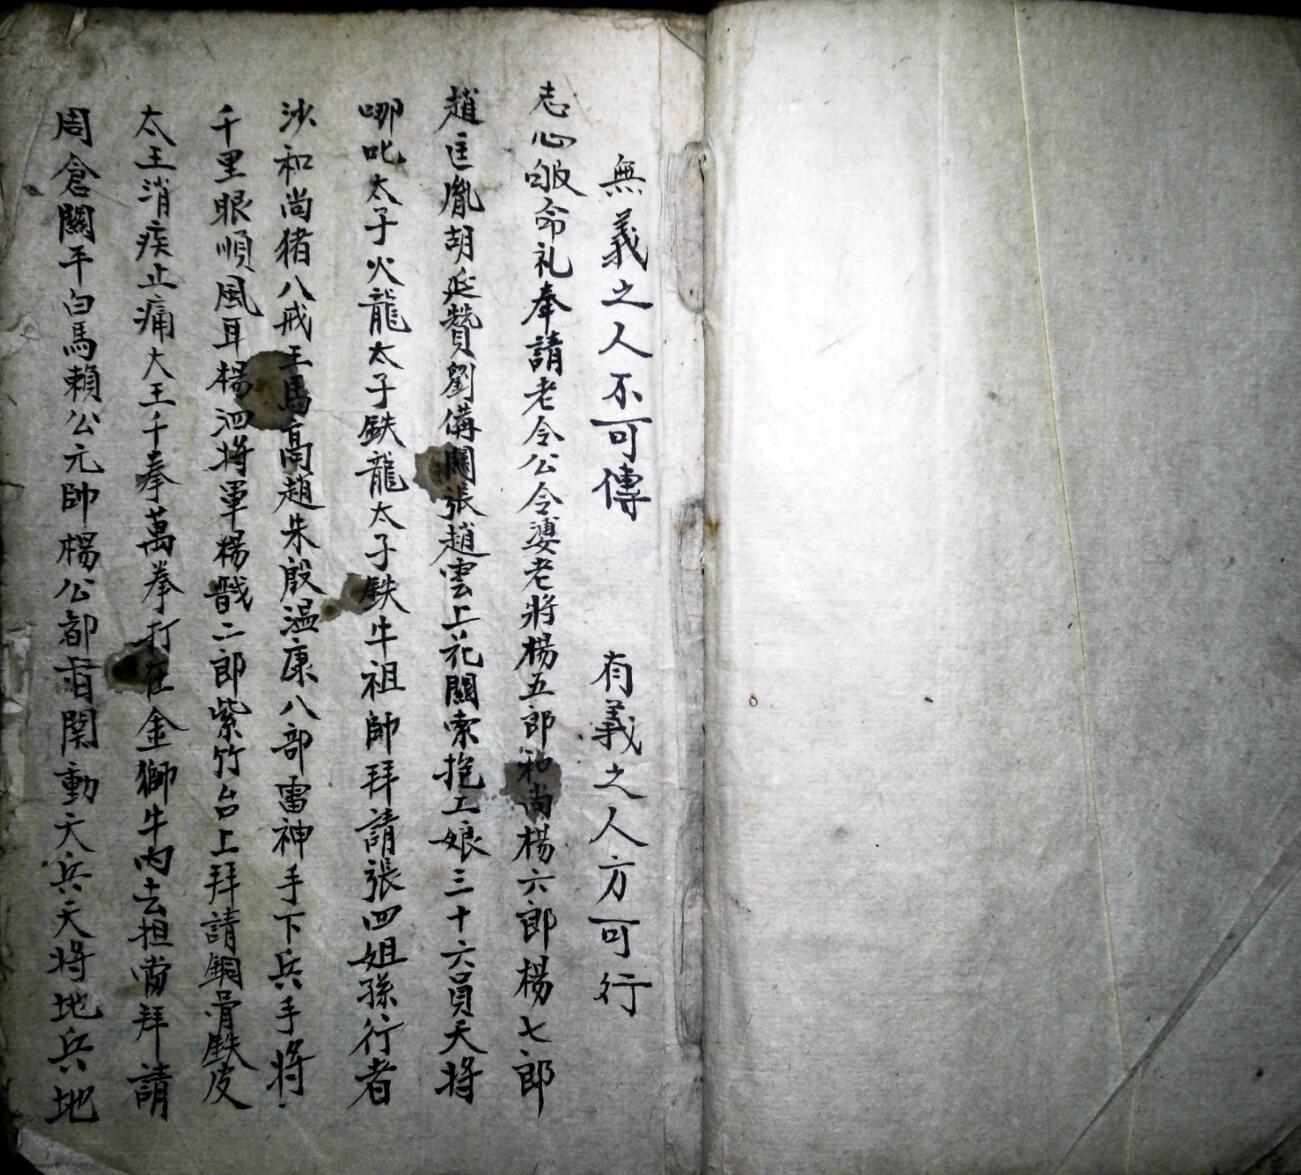 無義之人不可傳 有義之人方可行
志心皈命礼奉請老令公令婆老將楊五郎和尚楊六郎楊七郎
趙匡胤胡延贊劉備關張趙雲上花關索抱工娘三十六員天將
哪叱太子火龍太子鉄龍太子鉄牛祖師拜請張四姐孫行者
沙和尚猪八戒王馬高趙朱殷溫康八部雷神手下兵手將
千里眼順風耳楊泗將軍楊戩二郎紫竹台上拜請銅骨鉄皮
太王消疾止痛大王千拳萬拳打在金獅牛内去担當拜請
周倉關平白馬賴公元帥楊公都督関動天兵天將地兵地